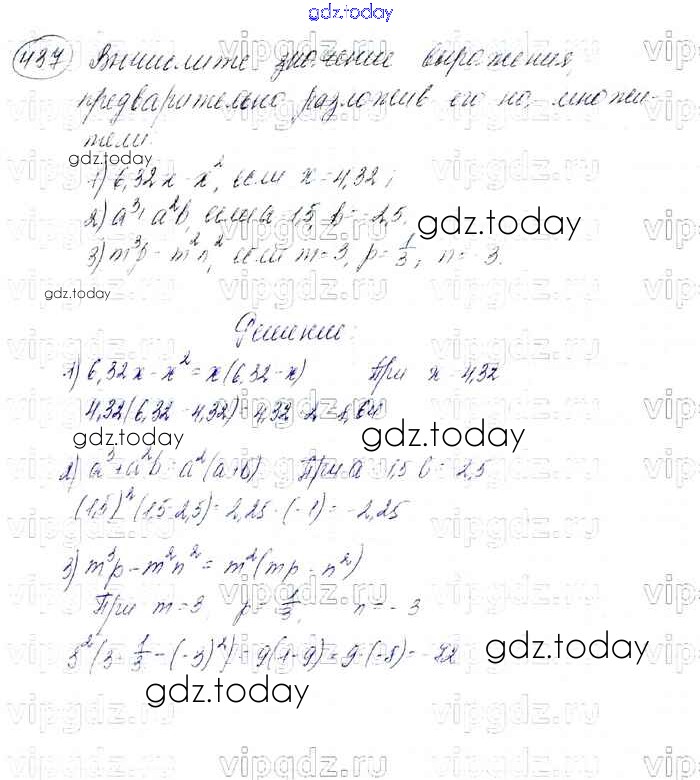 gdz.today
437 Вычислите значение выражения,
предварительно разложив его на множи-
тели.
gdz.today
1) 6,32x - x², если x = 4,32;
2) a³ + a²b, если a = 1,5, b = -2,5;
gdz.today
3) m³p - m²n², если m = 3, p = 1/3, n = -3.
gdz.today
Решение:
1) 6,32x - x² = x(6,32 - x) При x = 4,32
4,32(6,32 - 4,32) = 4,32 · 2 =
gdz.today
gdz.today
2) a³ + a²b = a²(a+b) При a = 1,5 b = -2,5
(1,5)² (1,5 - 2,5) = 2,25 · (-1) = -2,25
3) m³p - m²n² = m²(mp - n²)
При m = 3, p = 1/3, n = -3
3²(3 · 1/3 - (-3)²) = 9(1-9) = 9 · (-8) = -72
gdz.today
gdz.today
vipgdz.ru